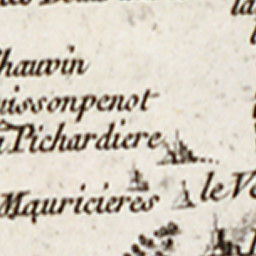 la
hauvin
uissonpenot
Pichardiere
Mauricieres le Ve